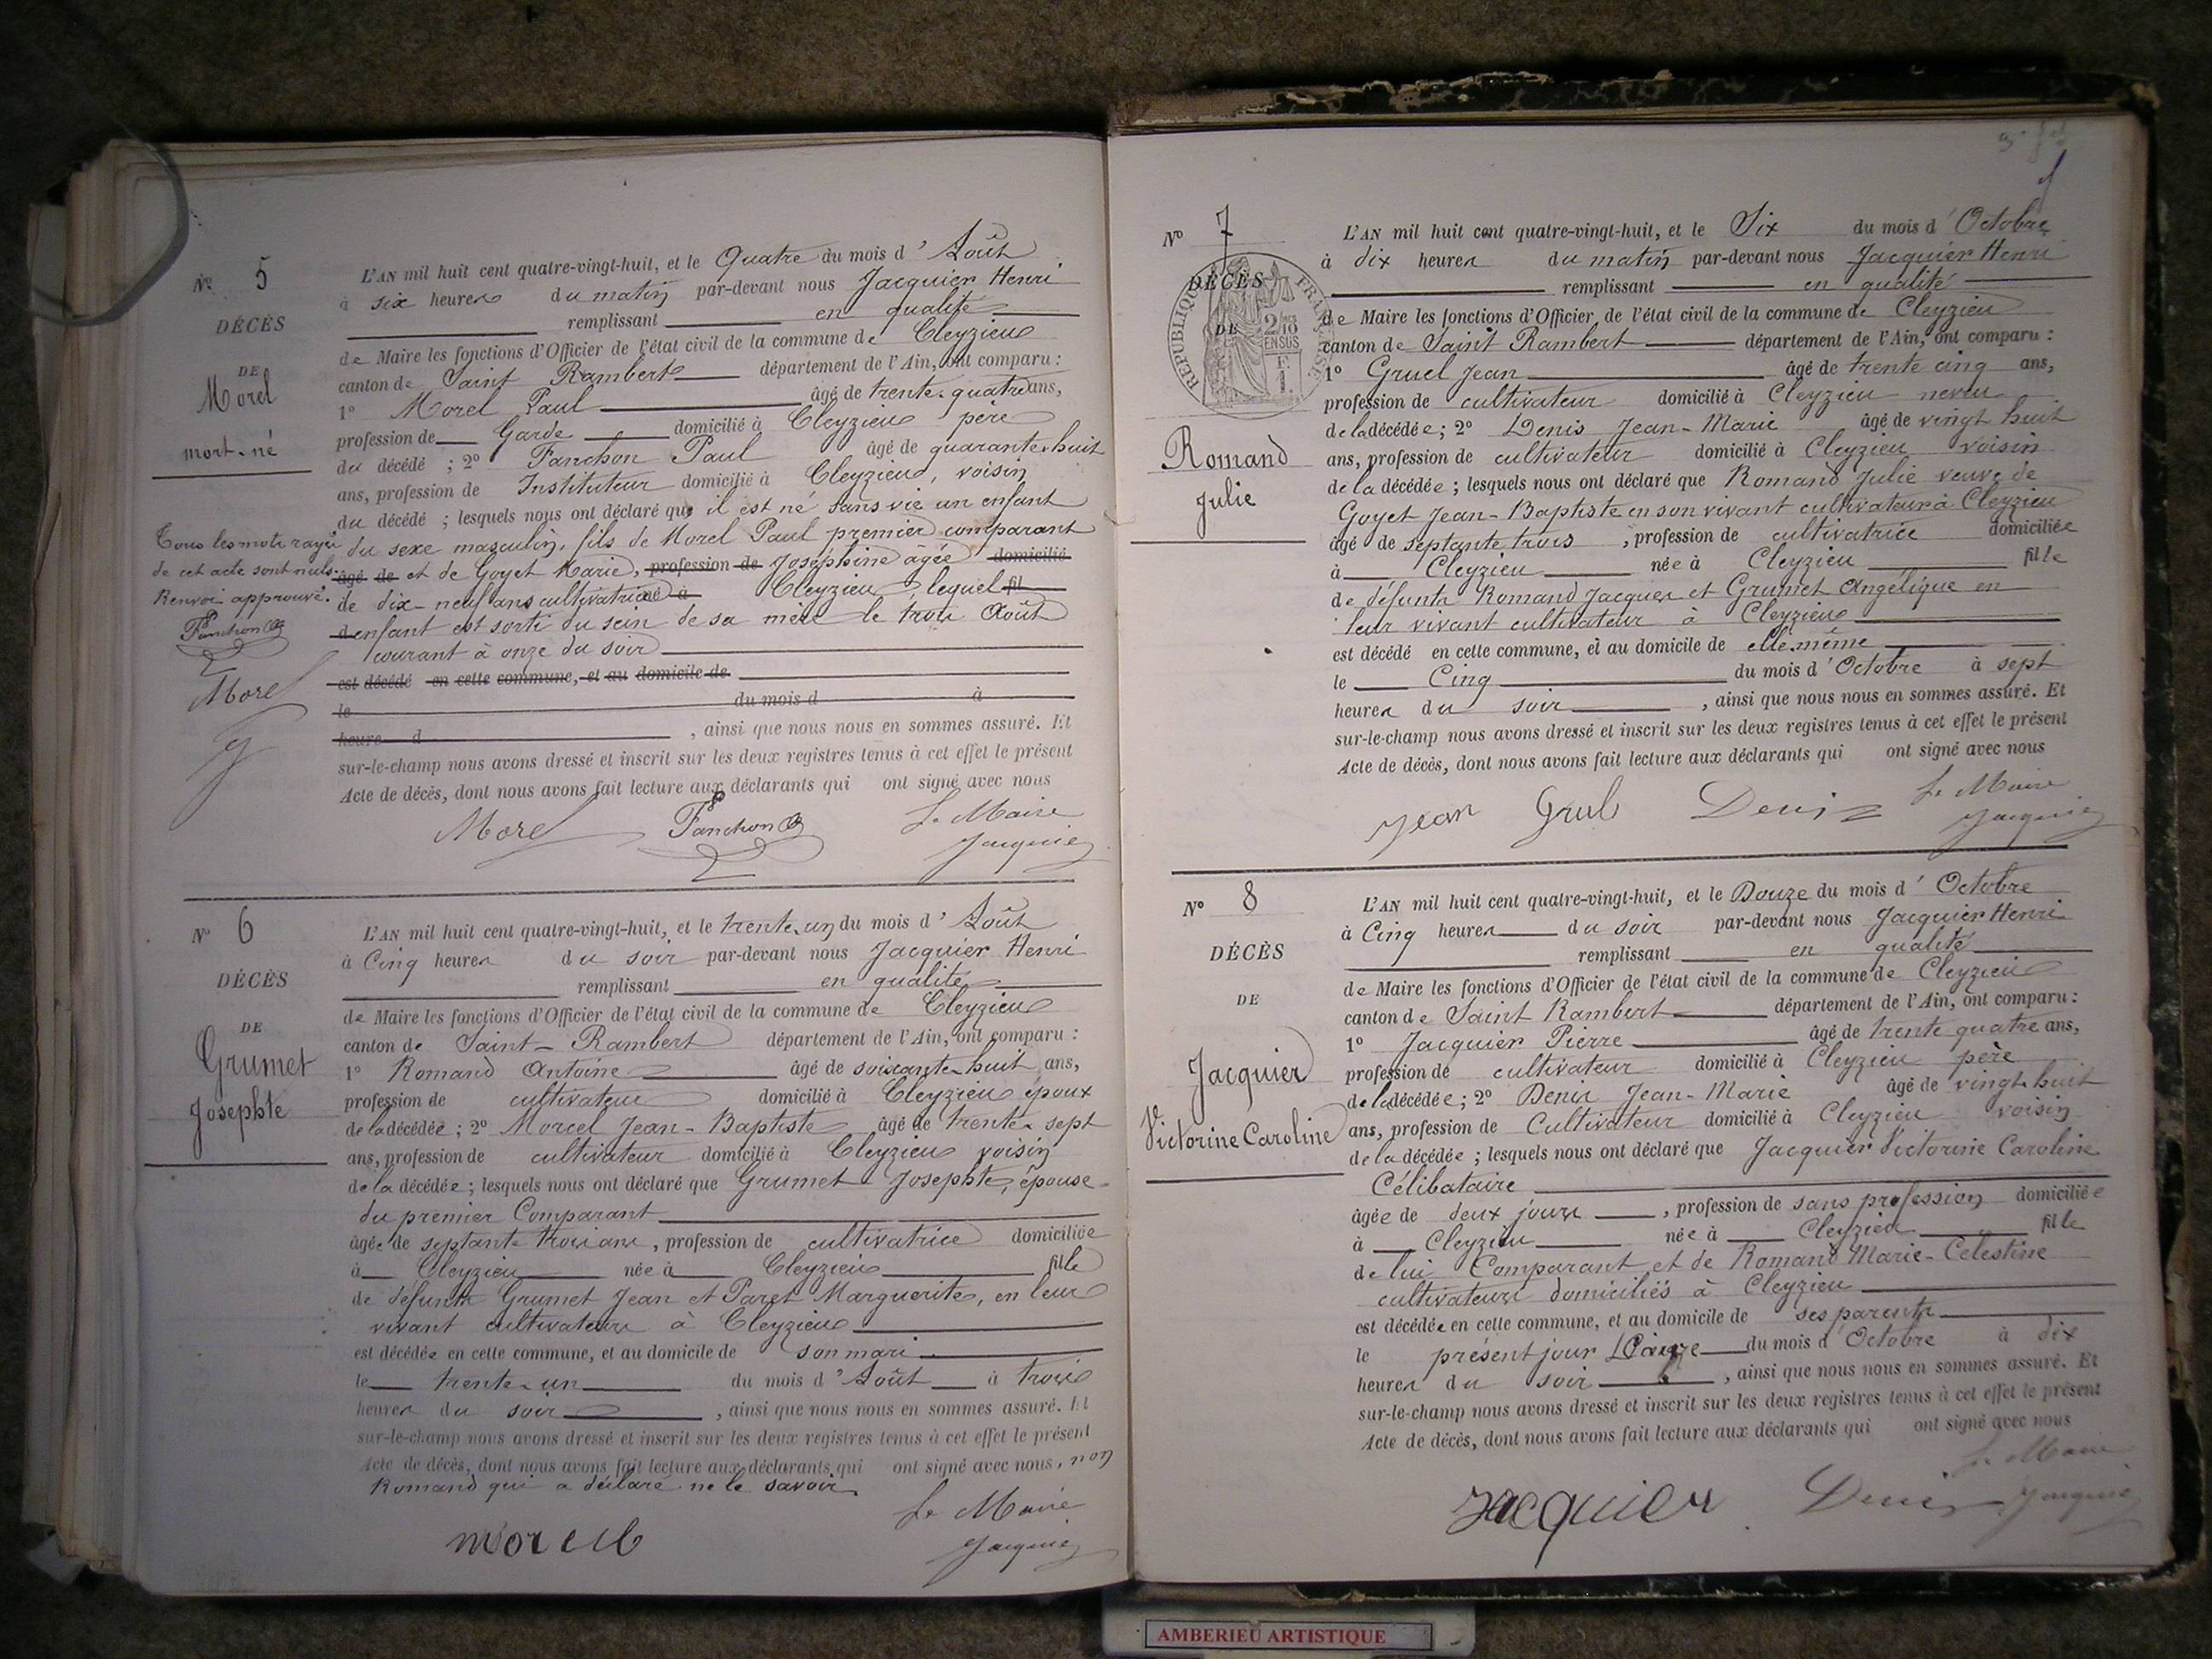 N° 5
DÉCÈS
DE
Morel
mort-né
Tous les mots rayés
de cet acte sont nuls.
Renvoi approuvé.
Fanchon
Morel
L'AN mil huit cent quatre-vingt-huit, et le Quatre du mois d'Août
à six heures du matin par-devant nous Jacquier Henri
remplissant en qualité
de Maire les fonctions d'Officier de l'état civil de la commune de Cleyzieu
canton de Saint Rambert département de l'Ain, ont comparu :
1° Morel Paul âgé de trente-quatre ans,
profession de Garde domicilié à Cleyzieu père
du décédé ; 2° Fanchon Paul âgé de quarante-huit
ans, profession de Instituteur domicilié à Cleyzieu, voisin
du décédé ; lesquels nous ont déclaré que il est né sans vie un enfant
du sexe masculin, fils de Morel Paul premier comparant
âgé de et de Goyet Marie, profession de Joséphine âgée domicilié
de dix-neuf ans cultivatrice à Cleyzieu, lequel fil
d enfant est sorti du sein de sa mère le trois Août
courant à onze du soir
est décédé en cette commune, et au domicile de
le du mois d à
heure d , ainsi que nous nous en sommes assuré. Et
sur-le-champ nous avons dressé et inscrit sur les deux registres tenus à cet effet le présent
Acte de décès, dont nous avons fait lecture aux déclarants qui ont signé avec nous
Morel Fanchon Le Maire
Jacquier
N° 6
DÉCÈS
DE
Grumet
Josephte
L'AN mil huit cent quatre-vingt-huit, et le trente-un du mois d'Août
à Cinq heures du soir par-devant nous Jacquier Henri
remplissant en qualité
de Maire les fonctions d'Officier de l'état civil de la commune de Cleyzieu
canton de Saint-Rambert département de l'Ain, ont comparu :
1° Romand Antoine âgé de soixante-huit ans,
profession de cultivateur domicilié à Cleyzieu époux
de la décédée ; 2° Morcel Jean-Baptiste âgé de trente-sept
ans, profession de cultivateur domicilié à Cleyzieu voisin
de la décédée ; lesquels nous ont déclaré que Grumet Josephte, épouse
du premier Comparant
âgée de septante trois ans, profession de cultivatrice domiciliée
à Cleyzieu née à Cleyzieu fille
de défunts Grumet Jean et Paret Marguerite, en leur
vivant cultivateurs à Cleyzieu
est décédée en cette commune, et au domicile de son mari
le trente-un du mois d'Août à trois
heures du soir , ainsi que nous nous en sommes assuré. Et
sur-le-champ nous avons dressé et inscrit sur les deux registres tenus à cet effet le présent
Acte de décès, dont nous avons fait lecture aux déclarants qui ont signé avec nous, non
Romand qui a déclaré ne le savoir.
Le Maire
Morcel Jacquier
N° 7
DÉCÈS
DE
RÉPUBLIQUE FRANÇAISE
2/10 EN SUS
F
1.
Romand
Julie
L'AN mil huit cent quatre-vingt-huit, et le Six du mois d'Octobre
à dix heures du matin par-devant nous Jacquier Henri
remplissant en qualité
de Maire les fonctions d'Officier de l'état civil de la commune de Cleyzieu
canton de Saint Rambert département de l'Ain, ont comparu :
1° Gruel Jean âgé de trente cinq ans,
profession de cultivateur domicilié à Cleyzieu neveu
de la décédée ; 2° Denis Jean-Marie âgé de vingt huit
ans, profession de cultivateur domicilié à Cleyzieu voisin
de la décédée ; lesquels nous ont déclaré que Romand Julie veuve de
Goyet Jean-Baptiste en son vivant cultivateur à Cleyzieu
âgé de septante trois , profession de cultivatrice domiciliée
à Cleyzieu née à Cleyzieu fille
de défunts Romand Jacques et Grumet Angélique en
leur vivant cultivateur à Cleyzieu
est décédé en cette commune, et au domicile de elle même
le Cinq du mois d'Octobre à sept
heures du soir , ainsi que nous nous en sommes assuré. Et
sur-le-champ nous avons dressé et inscrit sur les deux registres tenus à cet effet le présent
Acte de décès, dont nous avons fait lecture aux déclarants qui ont signé avec nous
Jean Gruel Denis Le Maire
Jacquier
N° 8
DÉCÈS
DE
Jacquier
Victorine Caroline
L'AN mil huit cent quatre-vingt-huit, et le Douze du mois d'Octobre
à Cinq heures du soir par-devant nous Jacquier Henri
remplissant en qualité
de Maire les fonctions d'Officier de l'état civil de la commune de Cleyzieu
canton de Saint Rambert département de l'Ain, ont comparu :
1° Jacquier Pierre âgé de trente quatre ans,
profession de cultivateur domicilié à Cleyzieu père
de la décédée ; 2° Denis Jean-Marie âgé de vingt-huit
ans, profession de Cultivateur domicilié à Cleyzieu voisin
de la décédée ; lesquels nous ont déclaré que Jacquier Victorine Caroline
Célibataire
âgée de deux jours , profession de sans profession domiciliée
à Cleyzieu née à Cleyzieu fille
de lui Comparant et de Romand Marie-Célestine
cultivateurs domiciliés à Cleyzieu
est décédée en cette commune, et au domicile de ses parents
le présent jour du mois d'Octobre à dix
heures du soir , ainsi que nous nous en sommes assuré. Et
sur-le-champ nous avons dressé et inscrit sur les deux registres tenus à cet effet le présent
Acte de décès, dont nous avons fait lecture aux déclarants qui ont signé avec nous
Le Maire
Jacquier Denis Jacquier
AMBERIEU ARTISTIQUE